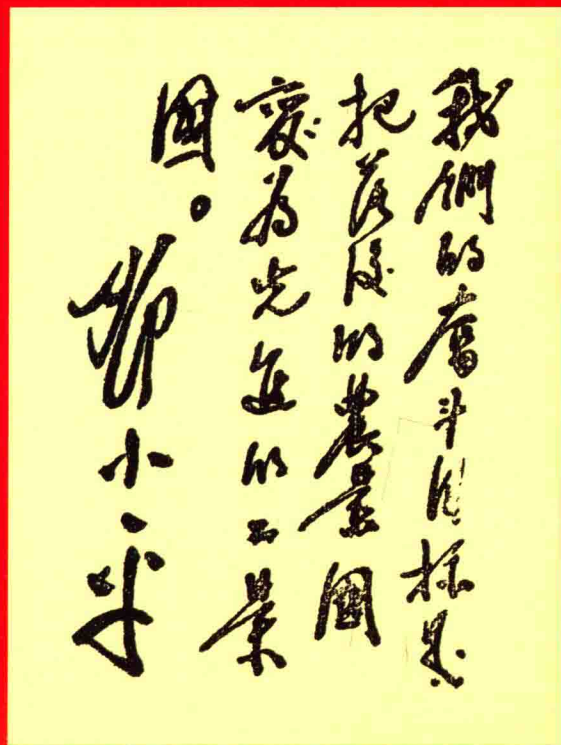 我們的奋斗目标是
把落後的農業國
變為先進的工業
國。
鄧小平